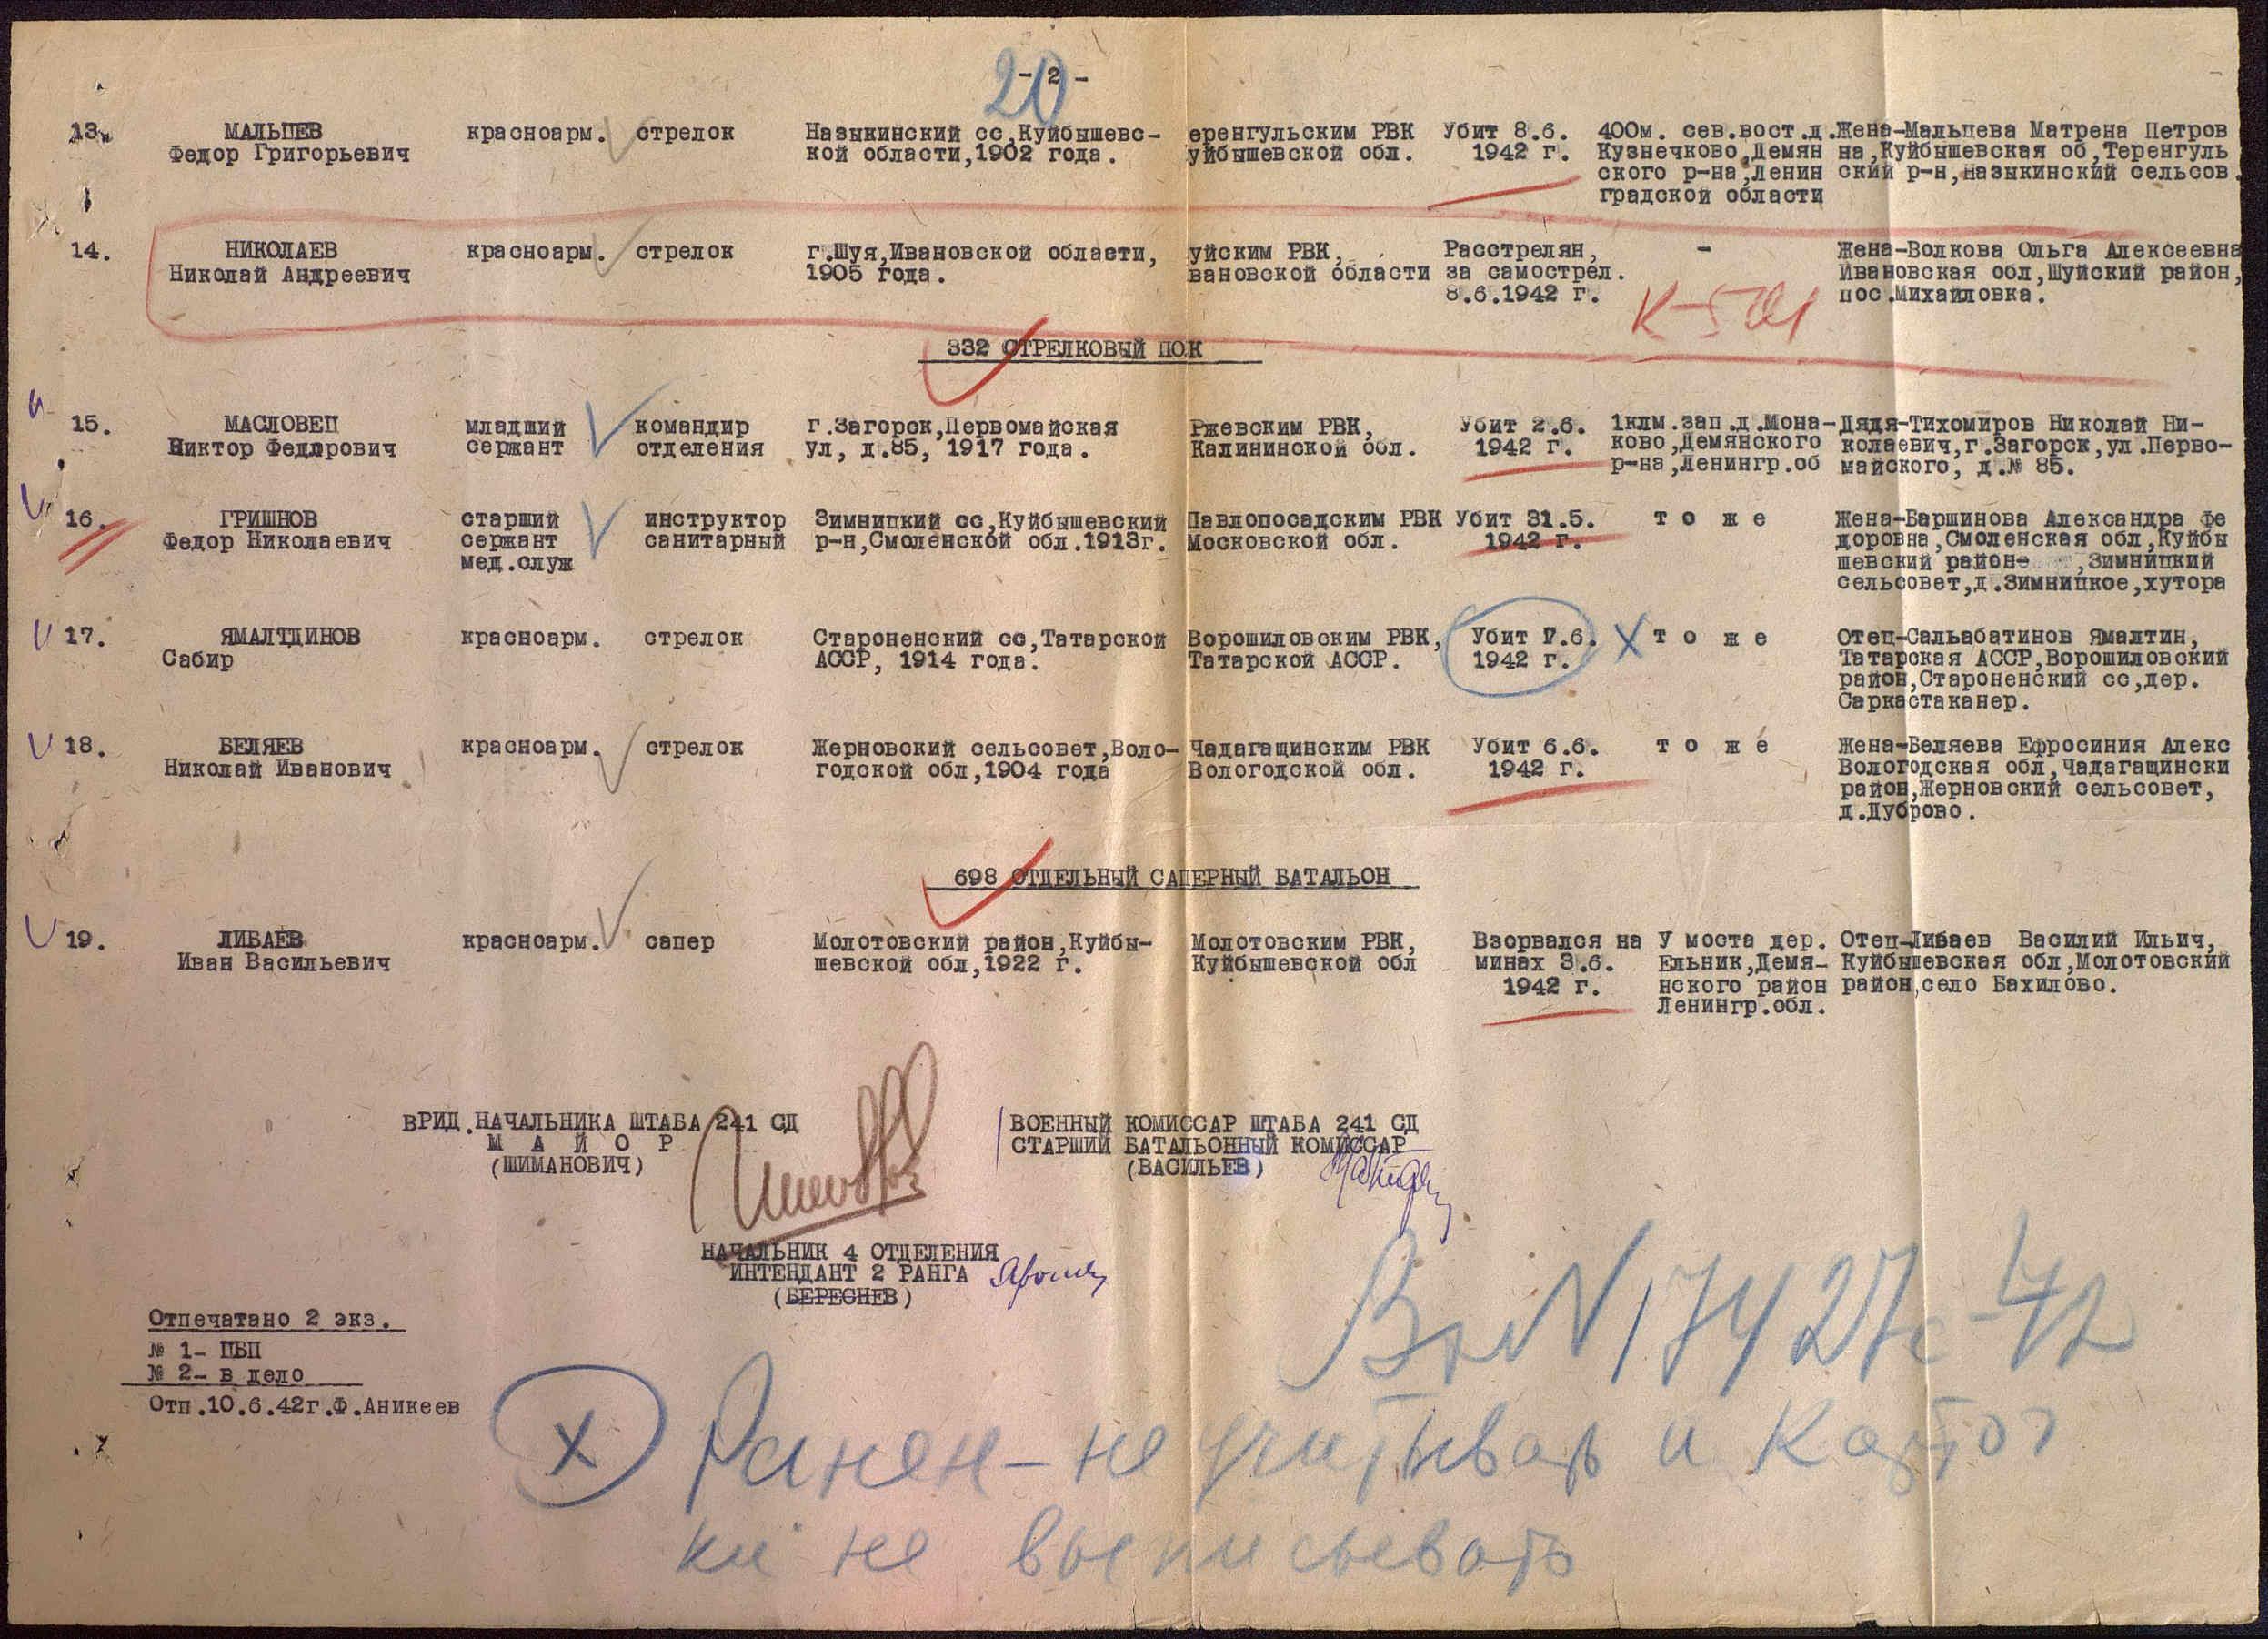 - 2 -
20
13. МАЛЬЦЕВ красноарм. стрелок Назыкинский сс,Куйбышевс- еренгульским РВК Убит 8.6. 400м. сев.вост.д. Жена-Мальцева Матрена Петров
Федор Григорьевич кой области,1902 года. уйбышевской обл. 1942 г. Кузнечково,Демян на,Куйбышевская об,Теренгуль
ского р-на,Ленин ский р-н,Назыкинский сельсов.
градской области
14. НИКОЛАЕВ красноарм. стрелок г.Шуя,Ивановской области, уйским РВК, Расстрелян, - Жена-Волкова Ольга Алексеевна
Николай Андреевич 1905 года. вановской области за самострел. Ивановская обл,Шуйский район,
8.6.1942 г. пос.Михайловка.
332 СТРЕЛКОВЫЙ ПОК
15. МАСЛОВЕЦ младший командир г.Загорск,Первомайская Ржевским РВК, Убит 2.6. 1клм.зап.д.Мона- Дядя-Тихомиров Николай Ни-
Виктор Федорович сержант отделения ул, д.85, 1917 года. Калининской обл. 1942 г. ково,Демянского колаевич,г.Загорск,ул.Перво-
р-на,Ленингр.об майского, д.№ 85.
16. ГРИШНОВ старший инструктор Зимницкий сс,Куйбышевский Павлопосадским РВК Убит 31.5. т о ж е Жена-Баршинова Александра Фе
Федор Николаевич сержант санитарный р-н,Смоленской обл.1913г. Московской обл. 1942 г. доровна,Смоленская обл,Куйбы
мед.служ шевский район ,Зимницкий
сельсовет,д.Зимницкое,хутора
17. ЯМАЛТДИНОВ красноарм. стрелок Староненский сс,Татарской Ворошиловским РВК, Убит 7.6. х т о ж е Отец-Сальабатинов Ямалтин,
Сабир АССР, 1914 года. Татарской АССР. 1942 г. Татарская АССР,Ворошиловский
район,Староненский сс,дер.
Саркастаканер.
18. БЕЛЯЕВ красноарм. стрелок Жерновский сельсовет,Воло- Чадагащинским РВК Убит 6.6. т о ж е Жена-Беляева Ефросиния Алекс
Николай Иванович годской обл,1904 года Вологодской обл. 1942 г. Вологодская обл,Чадагащински
район,Жерновский сельсовет,
д.Дуброво.
698 ОТДЕЛЬНЫЙ САПЕРНЫЙ БАТАЛЬОН
19. ЛИБАЕВ красноарм. сапер Молотовский район,Куйбы- Молотовским РВК, Взорвался на У моста дер. Отец-Либаев Василий Ильич,
Иван Васильевич шевской обл,1922 г. Куйбышевской обл минах 3.6. Ельник,Демя- Куйбышевская обл,Молотовский
1942 г. нского район район,село Бахилово.
Ленингр.обл.
ВРИД.НАЧАЛЬНИКА ШТАБА 241 СД
М А Й О Р
(ШИМАНОВИЧ)
ВОЕННЫЙ КОМИССАР ШТАБА 241 СД
СТАРШИЙ БАТАЛЬОННЫЙ КОМИССАР
(ВАСИЛЬЕВ)
НАЧАЛЬНИК 4 ОТДЕЛЕНИЯ
ИНТЕНДАНТ 2 РАНГА
(БЕРЕСНЕВ)
Отпечатано 2 экз.
№ 1- ЦБП
№ 2- в дело
Отп.10.6.42г.Ф.Аникеев
Вх N 17427с-42
х Ранен - не учитывать и карточ
ки не выписывать